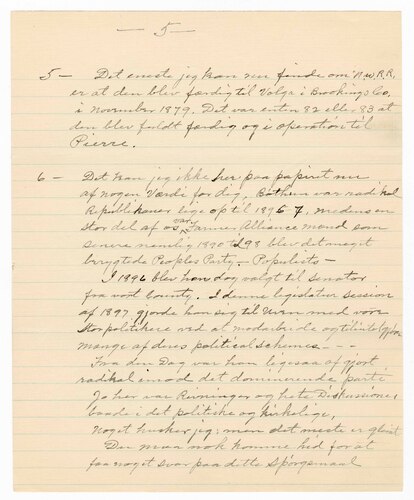 — 5 —
5 — Det eneste jeg kan nu finde om N.W.R.R.
er at den blev færdig til Volga i Brookings Co,
i November 1879. Det var enten 82 eller 83 at
den blev fuldt færdig og i operation til
Pierre.
6 — Det kan jeg ikke her paa papiret nu
af nogen Værdi for dig. Bothun var radikal
Republikaner lige op til 1896 7, medens en
stor del af os var Farmer Alliance mænd som
senere nemlig 1890 til 98 blev det meget
berygtede Peoples Party — Populists —
I 1896 blev han dog valgt til Senator
fra vort County. I denne legislatur Session
af 1897 gjorde han sig til Uven med vore
Stor politikere ved at modarbeide og
mange af deres political schemes. - - -
Fra den Dag var han ligesaa afgjort
radikal imod det dominerende parti
Jo her var Rivninger og hete Diskusioner
baade i det politiske og kirkelige,
Noget husker jeg; men det meste er glemt
Den maa nok komme hid for at
faa noget svar paa dette Spörgsmaal